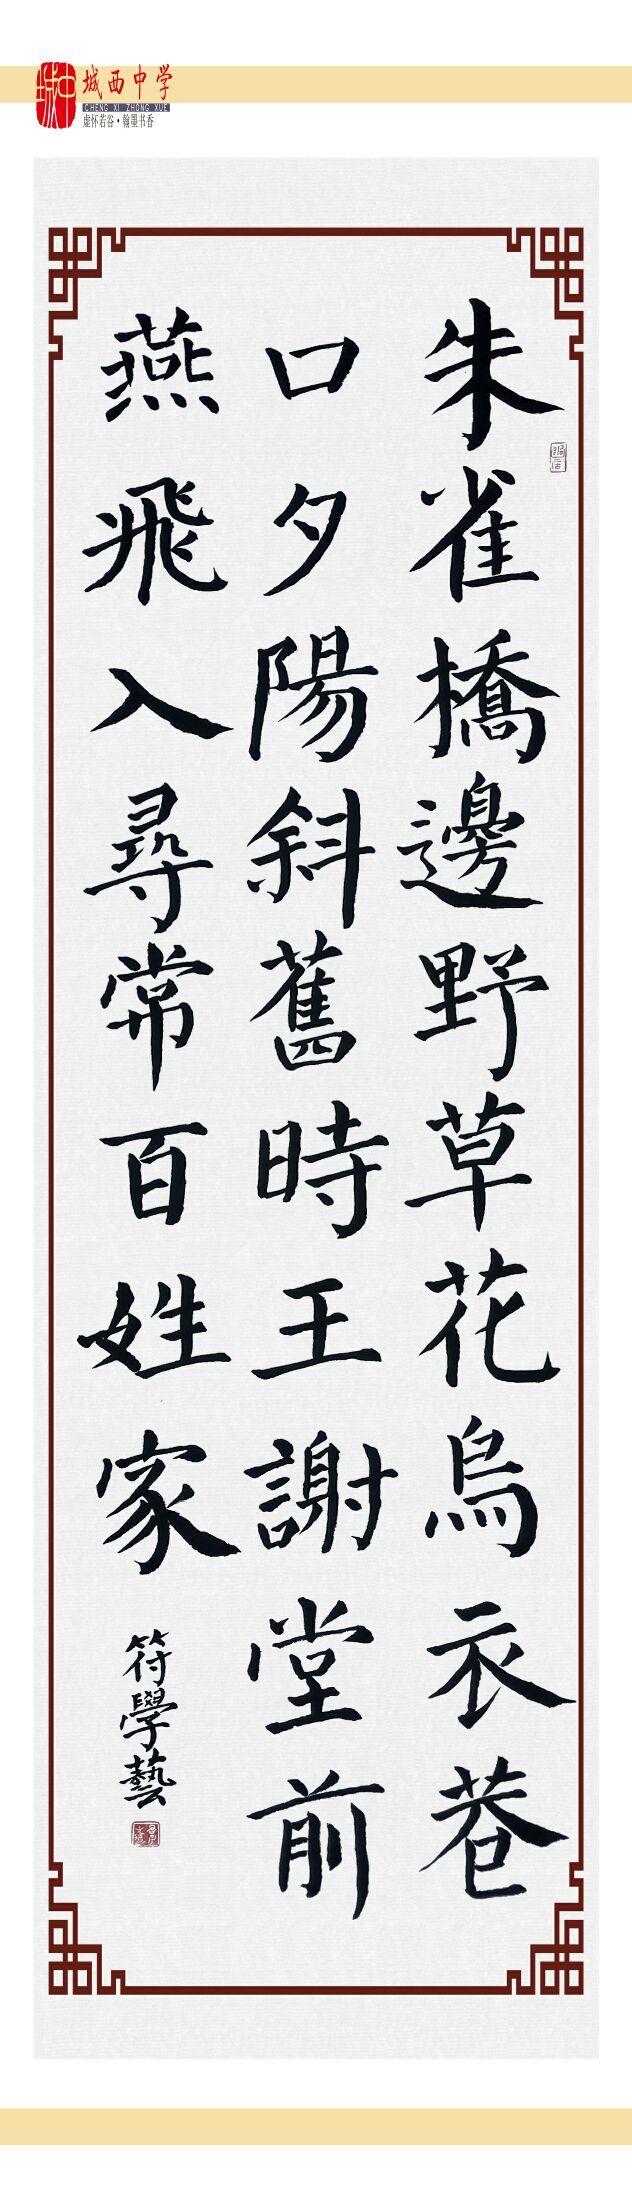 城西中学
CHENG XI ZHONG XUE
虚怀若谷·翰墨书香
朱雀橋邊野草花烏衣巷
口夕陽斜舊時王謝堂前
燕飛入尋常百姓家
符學藝